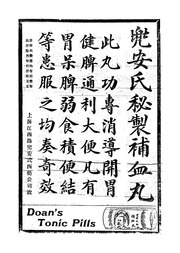 兜安氏秘製補血丸
此丸功專消導開胃
健脾通利大便凡有
胃呆脾弱食積便結
等患服之均奏奇效
上海江西路兜安氏西藥公司啟
Doan's
Tonic Pills